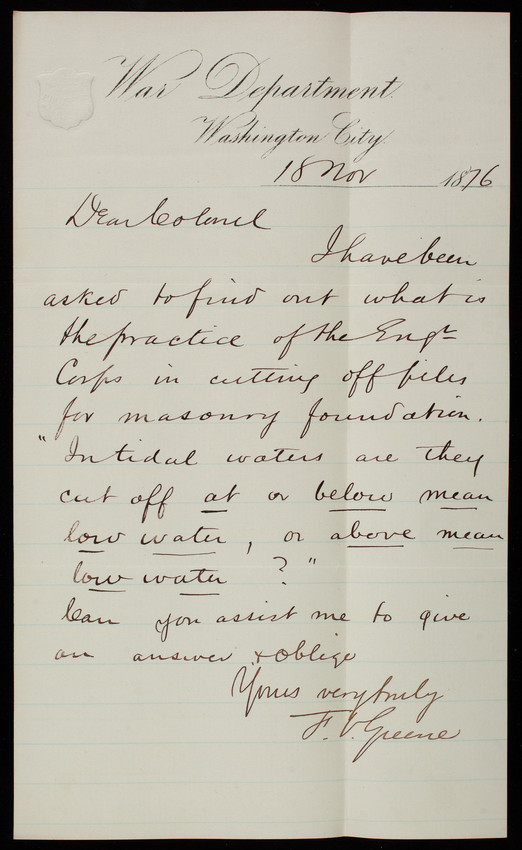 War Department.
Washington City.
18 Nov 1876
Dear Colonel
I have been
asked to find out what is
the practice of the Engr
Corps in cutting off piles
for masonry foundation.
"In tidal waters are they
cut off at or below mean
low water, or above mean
low water?"
Can you assist me to give
an answer & oblige
Yours very truly
F. V. Greene